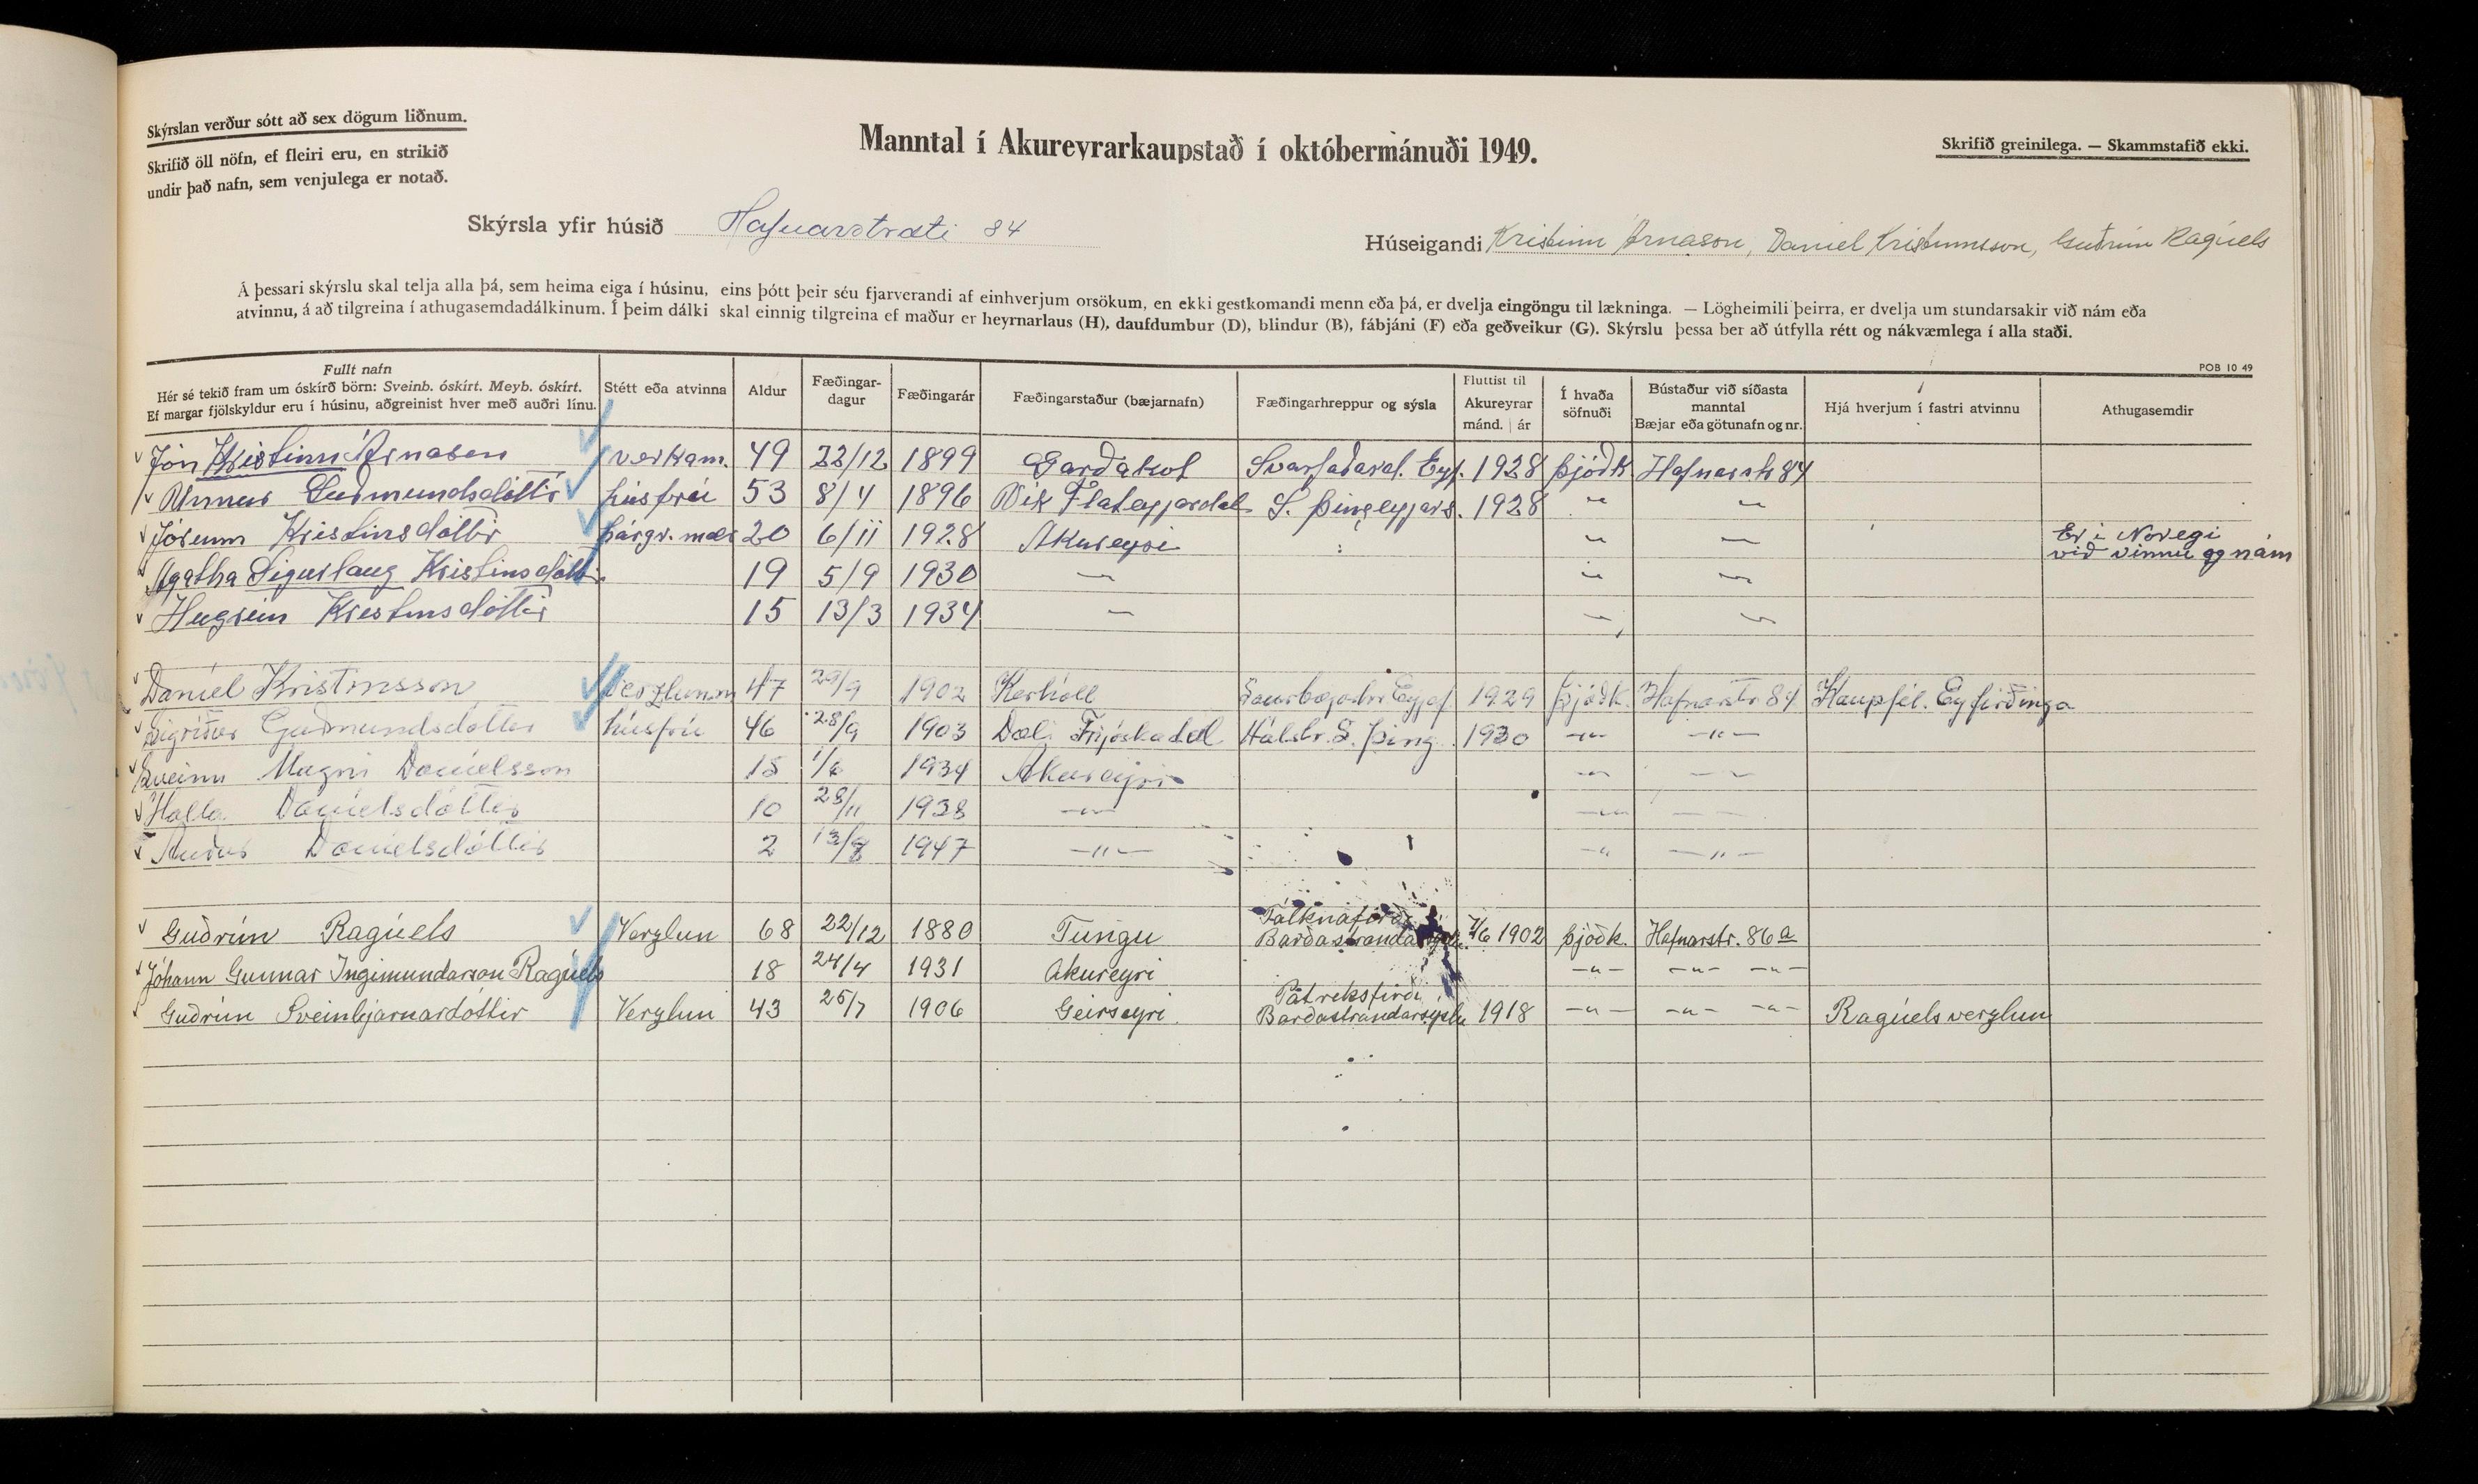 Skýrslan verður sótt að sex dögum liðnum.
Skrifið öll nöfn, ef fleiri eru, en strikið
undir það nafn, sem venjulega er notað.
Manntal í Akureyrarkaupstað í októbermánuði 1949.
Skrifið greinilega. — Skammstafið ekki.
Skýrsla yfir húsið Hafnarstræti 84
Húseigandi Kristinn Árnason, Daníel Kristinsson, Guðrún Ragúels
Á þessari skýrslu skal telja alla þá, sem heima eiga í húsinu, eins þótt þeir séu fjarverandi af einhverjum orsökum, en ekki gestkomandi menn eða þá, er dvelja eingöngu til lækninga. — Lögheimili þeirra, er dvelja um stundarsakir við nám eða
atvinnu, á að tilgreina í athugasemdadálkinum. Í þeim dálki skal einnig tilgreina ef maður er heyrnarlaus (H), daufdumbur (D), blindur (B), fábjáni (F) eða geðveikur (G). Skýrslu þessa ber að útfylla rétt og nákvæmlega í alla staði.
POB 10 49
Fullt nafn
Hér sé tekið fram um óskírð börn: Sveinb. óskírt. Meyb. óskírt.
Ef margar fjölskyldur eru í húsinu, aðgreinist hver með auðri línu.
Stétt eða atvinna
Aldur
Fæðingar-
dagur
Fæðingarár
Fæðingarstaður (bæjarnafn)
Fæðingarhreppur og sýsla
Fluttist til
Akureyrar
mánd. | ár
Í hvaða
söfnuði
Bústaður við síðasta
manntal
Bæjar eða götunafn og nr.
Hjá hverjum í fastri atvinnu
Athugasemdir
Jón Kristinn Árnason verkam. 49 22/12 1899 Garðakot Svarfaðard. Eyf. 1928 Þjóðk Hafnarstr 84
Unnur Guðmundsdóttir húsfrú 53 8/4 1896 Vík Flateyjardal S. Þingeyjars. 1928 " "
Jórunn Kristinsdóttir 20 6/11 1928 Akureyri " — Er í Noregi
við vinnu og nám
Agatha Sigurlaug Kristinsdóttir 19 5/9 1930 — " —
Hugrún Kristinsdóttir 15 13/3 1934 — — "
Daníel Kristinsson Verzlunm 47 29/9 1902 Kerhóll Saurbæjarhr Eyjaf 1929 Þjóðk. Hafnarstr 84 Kaupfél. Eyfirðinga
Sigríður Guðmundsdóttir húsfrú 46 28/9 1903 Dæli Fnjóskadal Hálshr. S. Þing. 1930 -"- -"-
Sveinn Magni Daníelsson 15 1/6 1934 Akureyri -"- — —
Halla Daníelsdóttir 10 28/11 1938 -"- -"- — —
Auður Daníelsdóttir 2 13/8 1947 -"- -" -"-
Guðrún Ragúels Verzlun 68 22/12 1880 Tungu Tálknafirði
Barðastrandasýslu 1/6 1902 Þjóðk. Hafnarstr. 86a
Jóhann Gunnar Ingimundarson Ragúels 18 24/4 1931 Akureyri -"- -"- -"-
Guðrún Sveinbjarnardóttir Verzlun 43 25/7 1906 Geirseyri Patreksfirði
Barðastrandarsýslu 1918 -"- -"- -"- Ragúelsverzlun